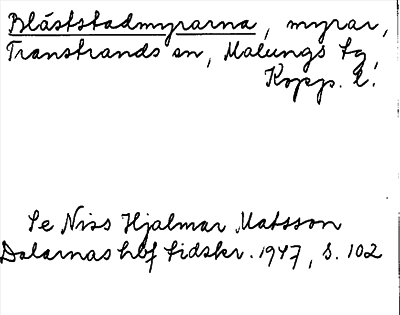 Bläststadmyrarna, myrar,
Transtrands sn, Malungs tg,
Kopp. l.
Se Niss Hjalmar Matsson
Dalarnas hbf tidskr. 1947, s. 102